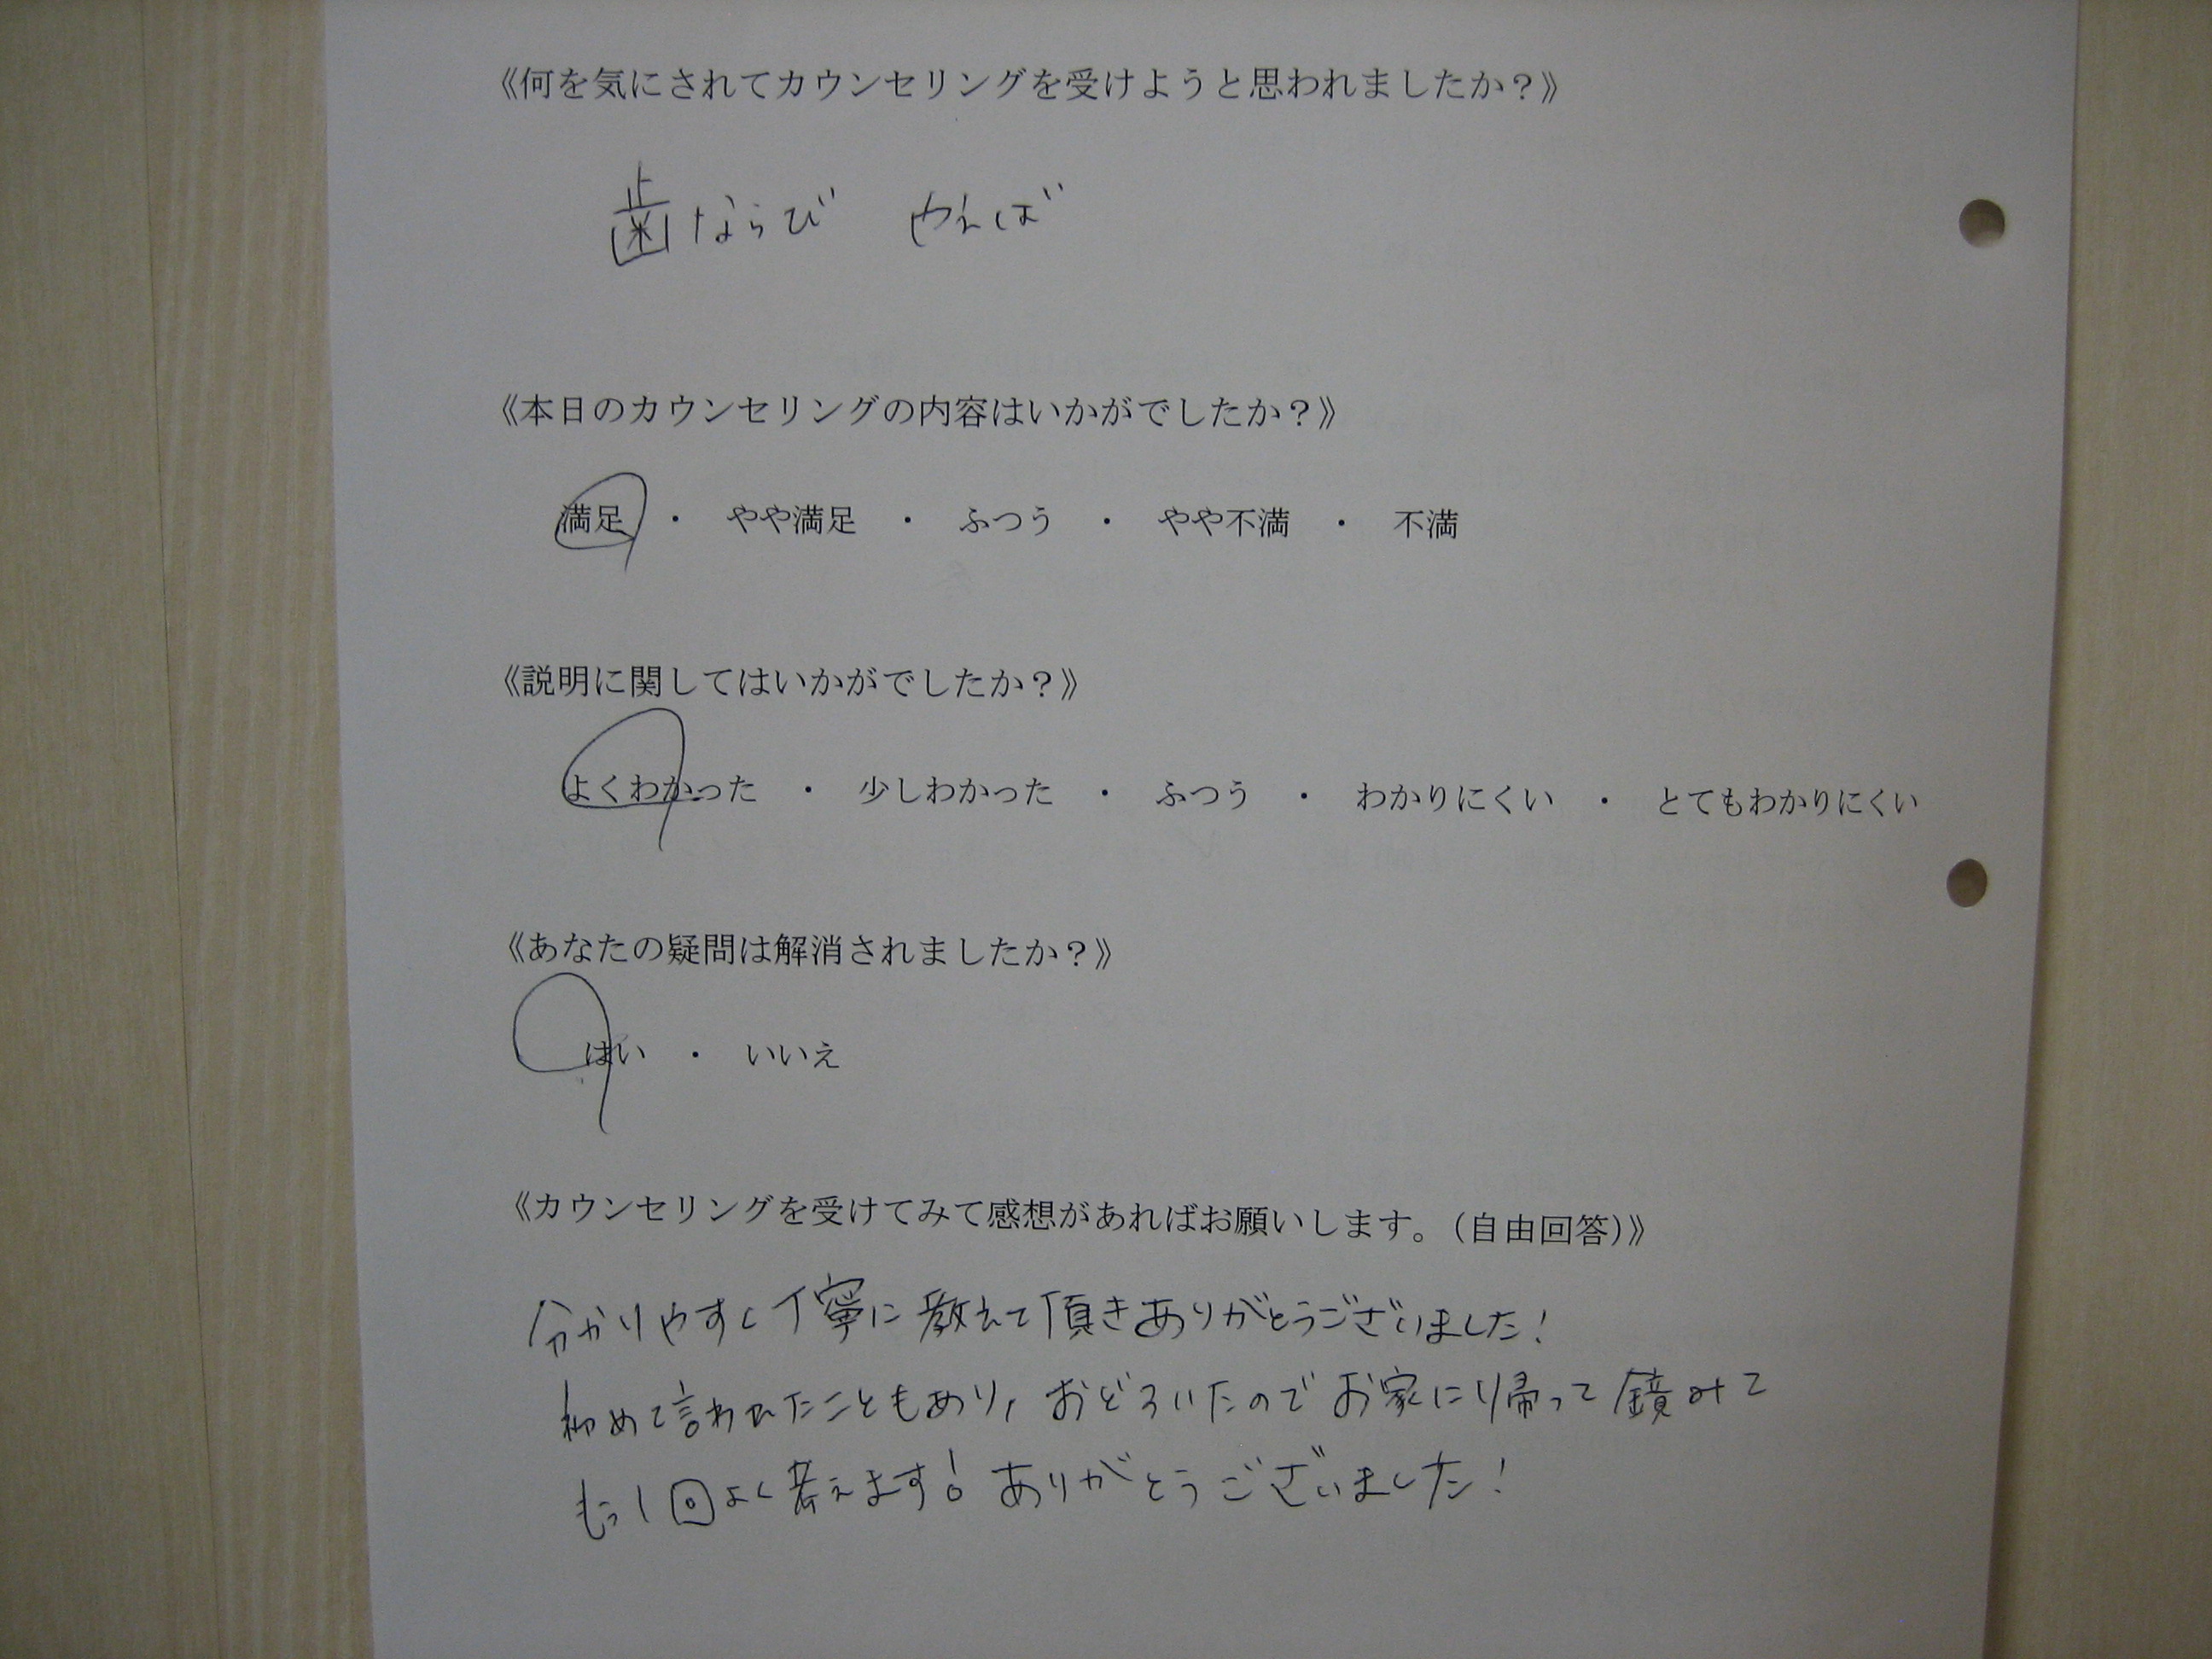 《何を気にされてカウンセリングを受けようと思われましたか？》
歯ならび　やえば
《本日のカウンセリングの内容はいかがでしたか？》
満足　・　やや満足　・　ふつう　・　やや不満　・　不満
《説明に関してはいかがでしたか？》
よくわかった　・　少しわかった　・　ふつう　・　わかりにくい　・　とてもわかりにくい
《あなたの疑問は解消されましたか？》
はい　・　いいえ
《カウンセリングを受けてみて感想があればお願いします。（自由回答）》
分かりやすく丁寧に教えて頂きありがとうございました！
初めて言われたこともあり、おどろいたのでお家に帰って鏡みて
もう1回よく考えます！ありがとうございました！